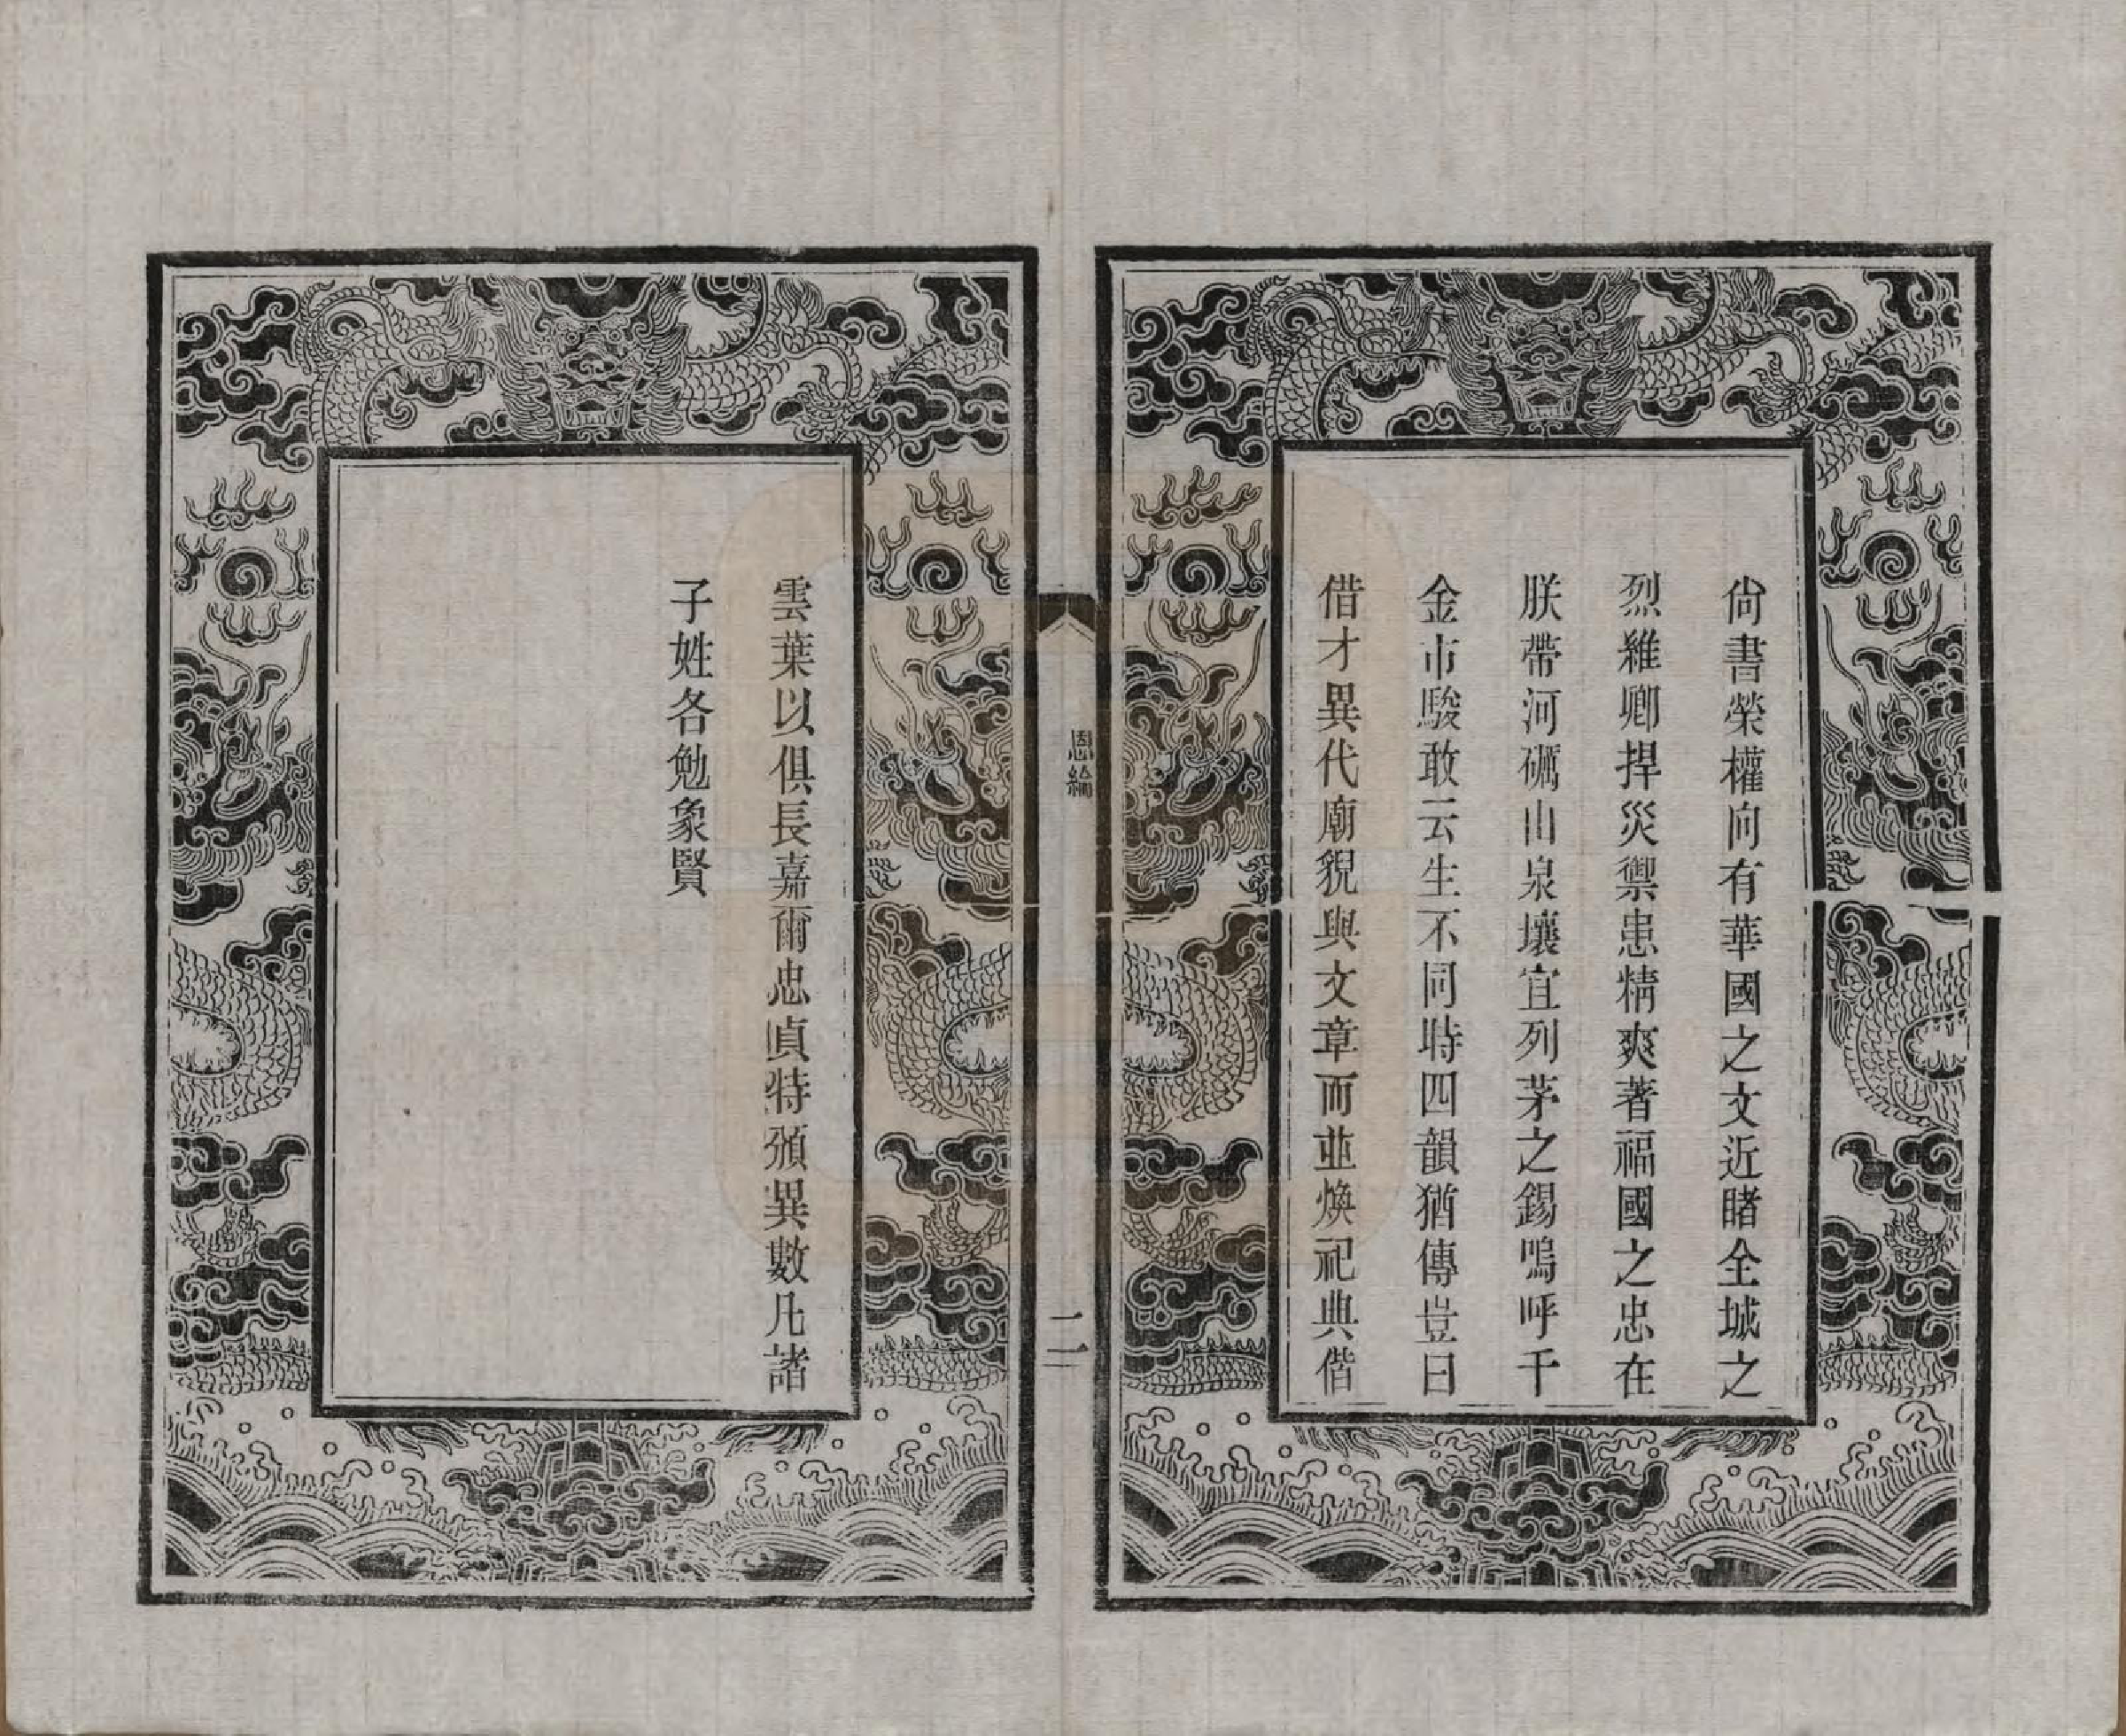 尙書榮權向有華國之文近睹全城之
烈維卿捍災禦患精爽著福國之忠在
朕帶河礪山泉壤宜列茅之錫嗚呼千
金市駿敢云生不同時四韻猶傳豈曰
借才異代廟貌與文章而並煥祀典偕
恩綸
二
雲葉以俱長嘉爾忠貞特頒異數凡諸
子姓各勉象賢